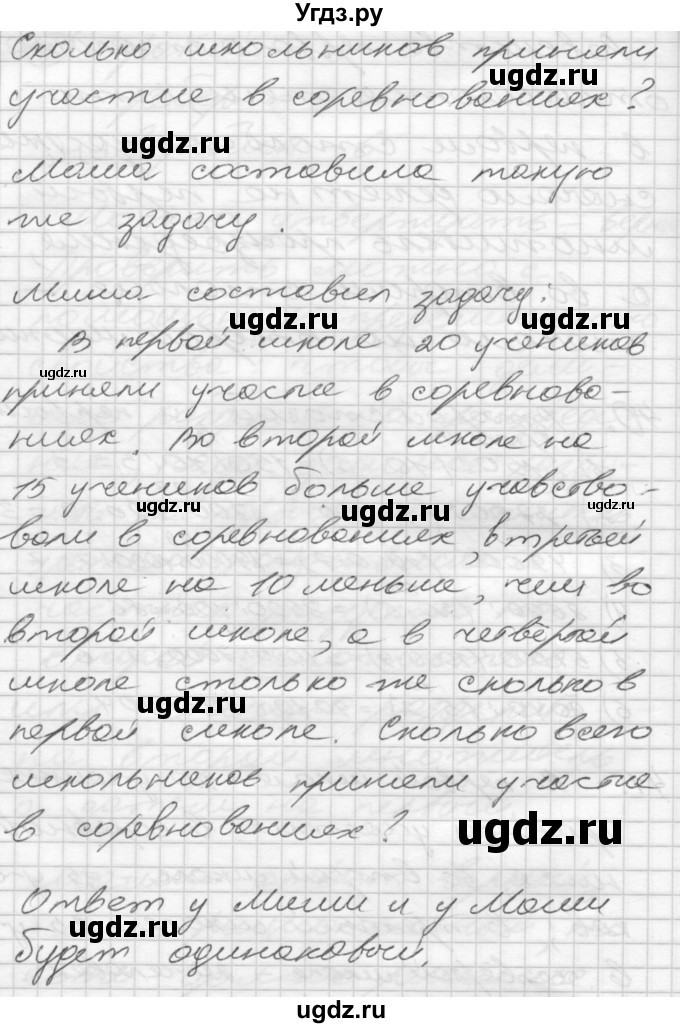 Угдз.ру
Сколько школьников приняли
ugdz.ru
участие в соревнованиях?
ugdz.ru
Маша составила такую
ugdz.ru
же задачу.
Миша составил задачу:
ugdz.ru ugdz.ru
В первой школе 20 учеников
ugdz.ru
приняли участие в соревнова-
ugdz.ru
ниях. Во второй школе на
15 учеников больше учавство-
ugdz.ru ugdz.ru
вали в соревнованиях, в третьей
школе на 10 меньше, чем во
ugdz.ru
второй школе, а в четвёртой
школе столько же сколько в
ugdz.ru
первой школе. Сколько всего
школьников приняли участие
в соревнованиях?
ugdz.ru
Ответ у Миши и у Маши
ugdz.ru ugdz.ru
будет одинаковый.
ugdz.ru